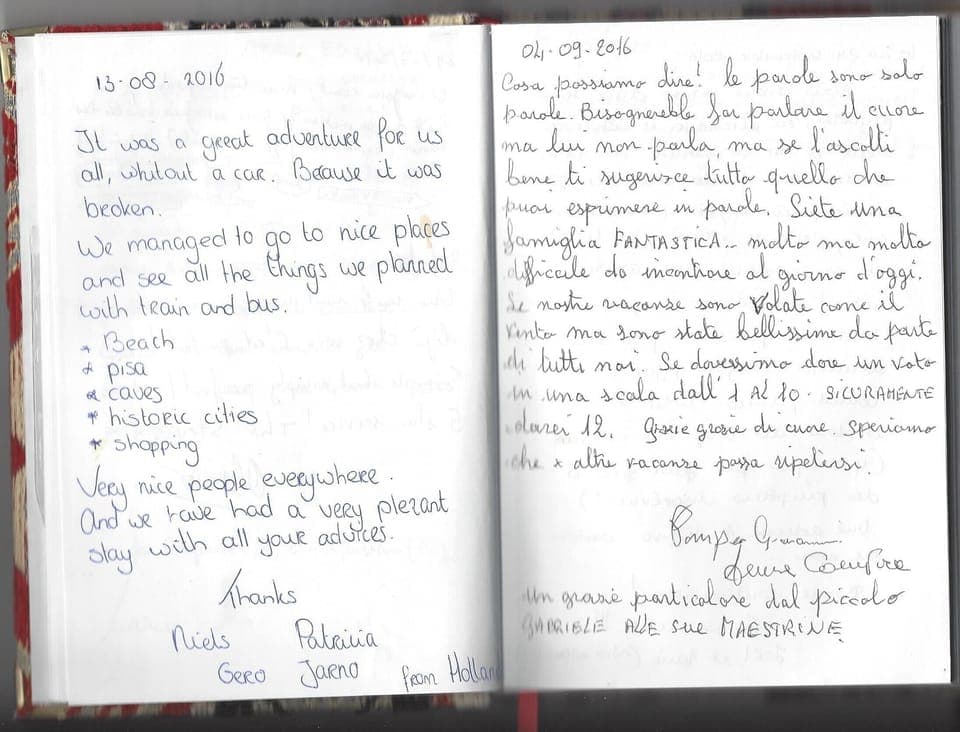 13-08-2016
It was a great adventure for us
all, whitout a car. Because it was
broken.
We managed to go to nice places
and see all the things we planned
with train and bus.
* Beach
* pisa
* caves
* historic cities
* shopping
Very nice people everywhere.
And we have had a very plezant
stay with all your advices.
Thanks
Niels Patricia
Gero Jarno from Holland
04-09-2016
Cosa possiamo dire! le parole sono solo
parole. Bisognerebbe far parlare il cuore
ma lui non parla, ma se l'ascolti
bene ti sugerisce tutto quello che
puoi esprimere in parole. Siete una
famiglia FANTASTICA.. molto ma molto
difficile da incontrare al giorno d'oggi.
Le nostre vacanze sono volate come il
vento ma sono state bellissime da parte
di tutti noi. Se dovessimo dare un voto
in una scala dall' 1 AL 10. SICURAMENTE
darei 12. Grazie grazie di cuore. Speriamo
che x altre vacanze possa ripetersi!
un grazie particolare dal piccolo
GABRIELE ALLE sue MAESTRINE.